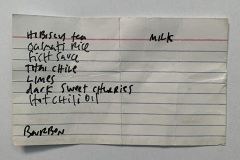 Hibiscus tea
Basmati Rice
Fish Sauce
Thai Chile
Limes
dark sweet cherries
Hot Chili Oil
Bourbon
MILK